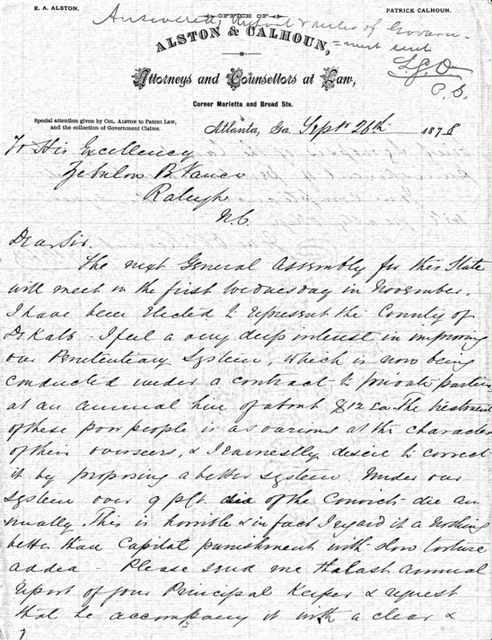 R. A. ALSTON.
PATRICK CALHOUN.
Answered, & rules of Govern-
ment sent
OFFICE OF
ALSTON & CALHOUN,
Attorneys and Counsellors at Law,
Corner Marietta and Broad Sts.
Special attention given by COL. ALSTON to Patent Law,
and the collection of Government Claims.
Atlanta, Ga. Sept 26th 1878
To His Excellency
Zebulon B Vance
Raleigh
N.C.
Dear Sir.
The next General Assembly for this State
will meet on the first Wednesday in November.
I have been elected to represent the County of
DeKalb - I feel a very deep interest in improving
our Penitentiary System, which is now being
conducted under a contract to private parties
at an annual hire of about $12 ea. The treatment
of these poor people is as various as the character
of their overseers, & I earnestly desire to correct
it by proposing a better system. Under our
system over 9 pct of the Convicts die an
nually. This is horrible & in fact I regard it a nothing
better than Capital punishment with slow torture
added - Please send me the last annual
report of your Principal Keeper & request
that he accompany it with a clear &